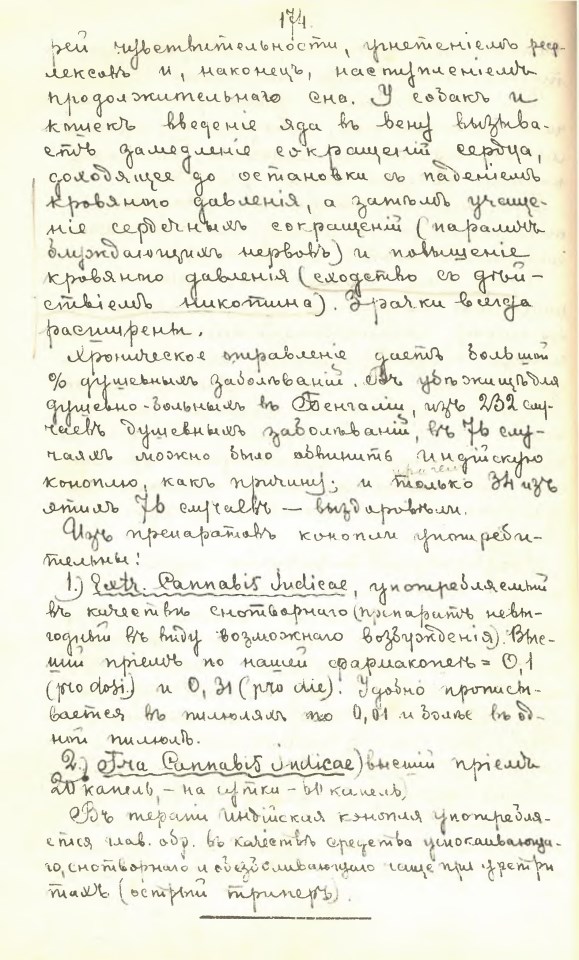 174.
рей чувствительности, угнетеніемъ реф-
лексовъ и, наконецъ, наступленіемъ
продолжительнаго сна. У собакъ и
кошекъ введеніе яда въ вену вызыва-
етъ замедленіе сокращеній сердца,
доходящее до остановки съ паденіемъ
кровяного давленія, а затѣмъ учаще-
ніе сердечныхъ сокращеній (параличъ
блуждающихъ нервовъ) и повышеніе
кровяного давленія (сходство съ дѣй-
ствіемъ никотина). Зрачки всегда
расширены.
Хроническое отравленіе даетъ большой
% душевныхъ заболѣваній. Въ убѣжищѣ для
душевно-больныхъ въ Бенгаліи, изъ 232 слу-
чаевъ душевныхъ заболѣваній, въ 76 слу-
чаяхъ можно было обвинить индійскую
причемъ
коноплю, какъ причину; и только 34 изъ
этихъ 76 случаевъ — выздоровѣли.
Изъ препаратовъ конопли употреби-
тельны:
1.) Extr. Cannabis Indicae, употребляемый
въ качествѣ снотворнаго (препаратъ невы-
годный въ виду возможнаго возбужденія). Выс-
шій пріемъ по нашей фармакопеѣ = 0,1
(pro dosi) и 0,31 (pro die). Удобно прописы-
вается въ пилюляхъ по 0,01 и болѣе въ од-
ной пилюлѣ.
2.) Tra Cannabis indicae) высшій пріемъ
20 капель, - на сутки - 60 капель)
Въ терапіи индійская конопля употребля-
ется глав. обр. въ качествѣ средства успокаивающа-
го, снотворнаго и обезболивающаго чаще при уретри
тахъ (острый триперъ).